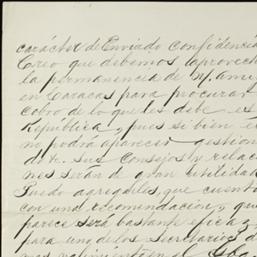 carácter de Enviado Confidencia
Creo que debemos aprovech
la permanencia de
en Caracas para procurar
cobro de lo que les debe es
República, pues si bien
no podrá aparecer gestion
do te. sus consejos y relac
nes serán de gran utilidad
Puedo agregarles, que cuento
con una recomendación, que
parece será bastante eficaz
para uno de los Secretarios d